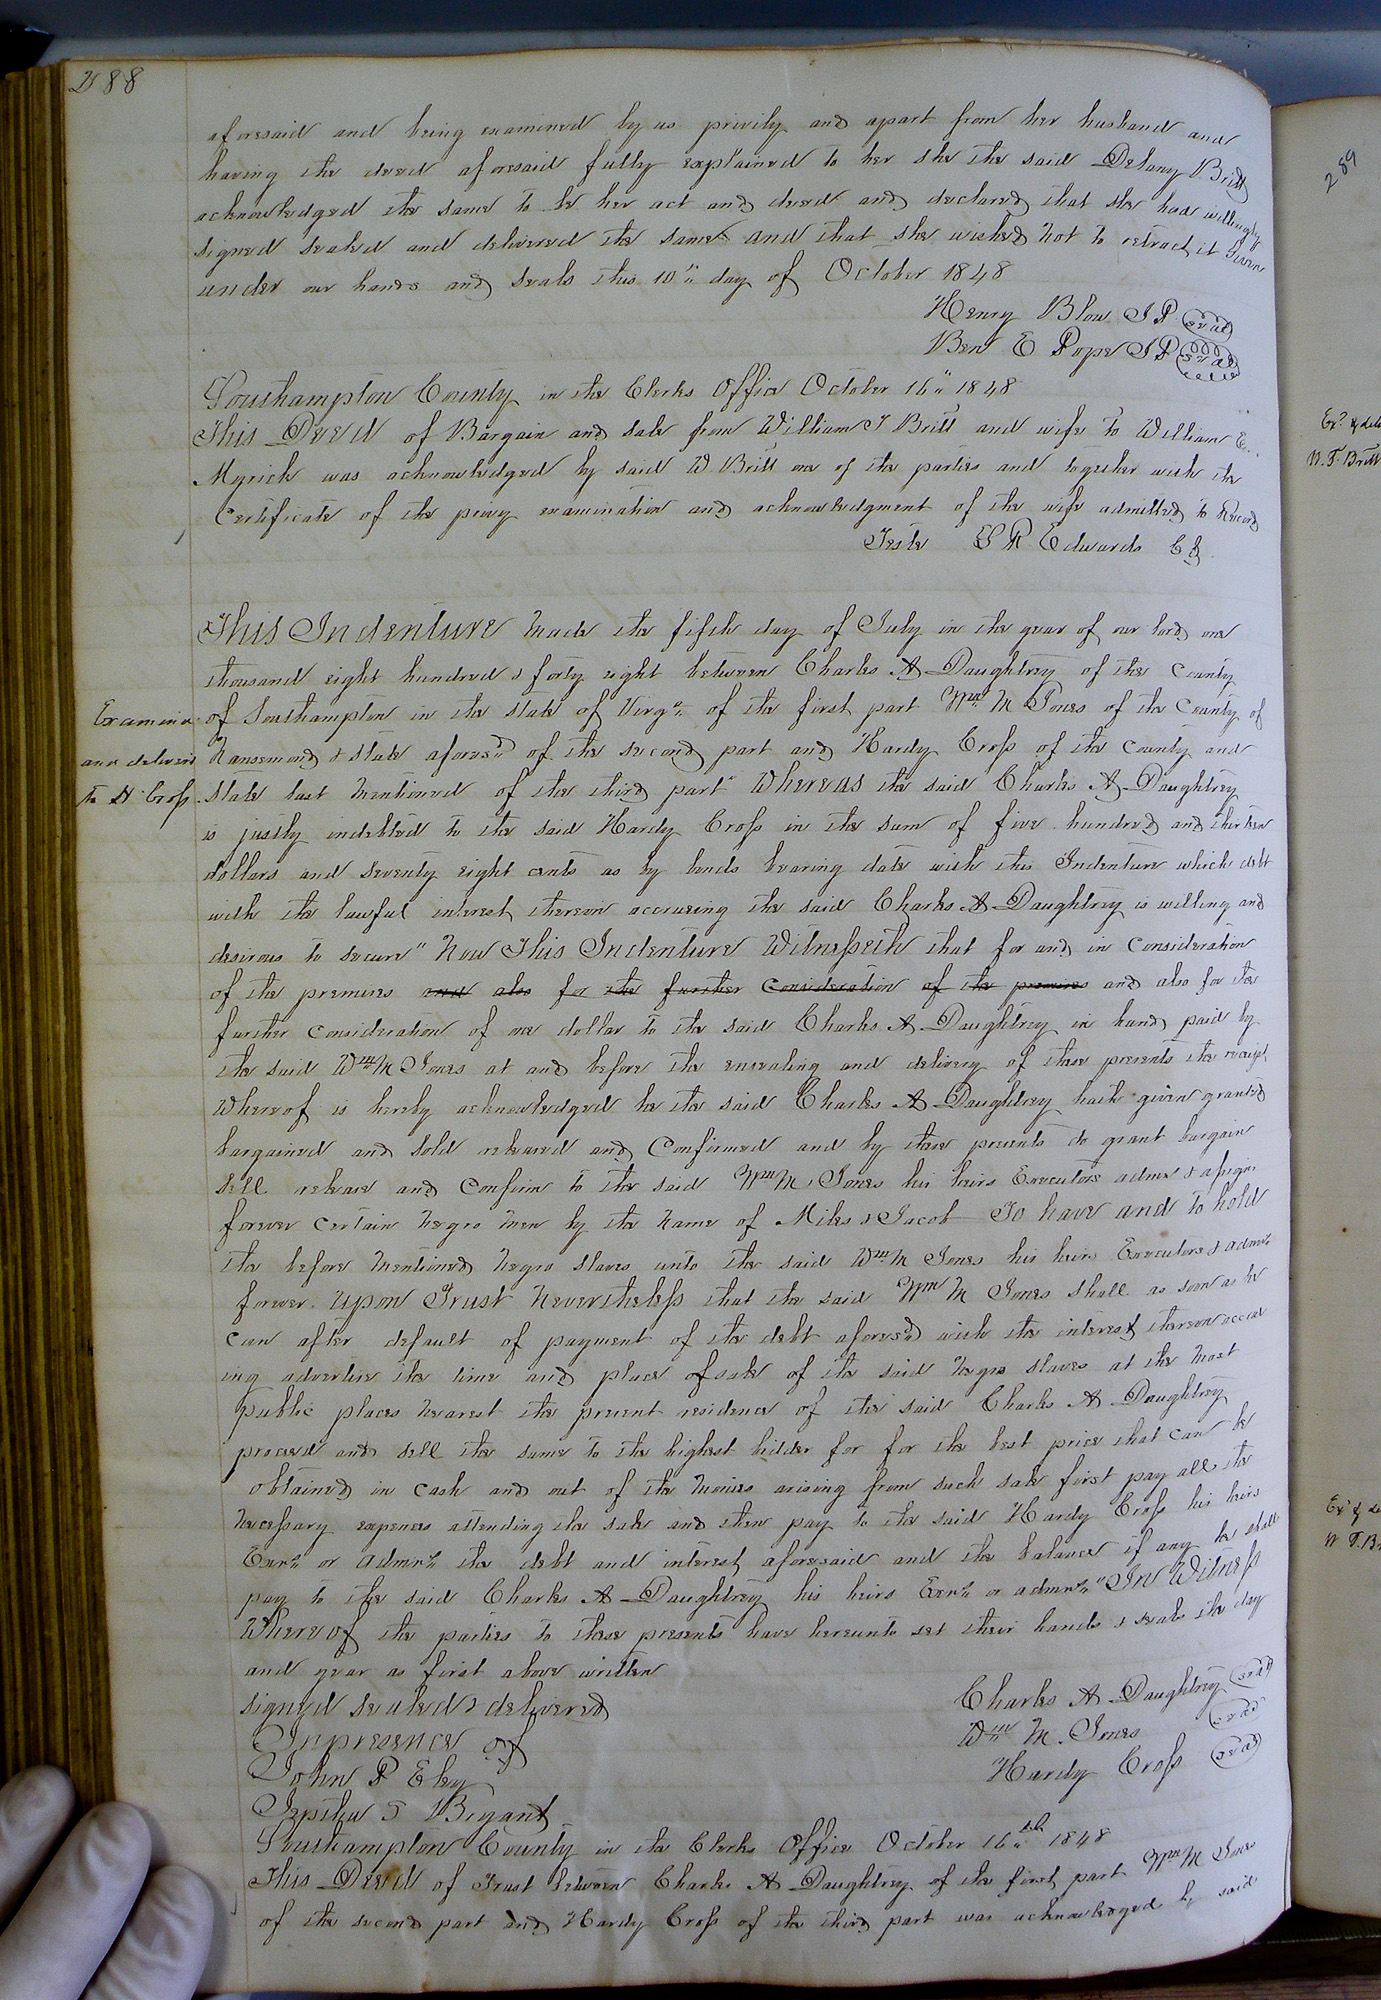 288
aforesaid and being examined by us privily and apart from her husband and
having the deed aforesaid fully explained to her she the said Delany Britt
acknowledged the same to be her act and deed and declared that she had willingly
signed sealed and delivered the same and that she wished not to retract it Given
under our hands and seals this 10th day of October 1848
Henry Blow J P seal
Ben E Pope J P seal
Southampton County in the Clerks Office October 16" 1848
This Deed of Bargain and sale from William T Britt and wife to William E
Myrick was acknowledged by said W Britt one of the parties and together with the
Certificate of the privy examination and acknowledgment of the wife admitted to Record
Teste L R Edwards Ck
This Indenture Made the fifth day of July in the year of our lord one
thousand eight hundred & forty eight between Charles A Daughtrey of the County
of Southampton in the state of Virga of the first part Wm M Jones of the County of
Nansemond & State aforesd of the second part and Hardy Cross of the County and
State last Mentioned of the third part" Whereas the said Charles A Daughtrey
is justly indebted to the said Hardy Cross in the sum of five hundred and thirteen
dollars and seventy eight cents as by bonds bearing date with this Indenture which debt
with the lawful interest thereon accrueing the said Charles A Daughtrey is willing and
desirous to secure" Now This Indenture Witnesseth that for and in Consideration
of the premises and also for the further Consideration of the premises and also for the
further Consideration of one dollar to the said Charles A Daughtrey in hand paid by
the said Wm M Jones at and before the ensealing and delivery of these presents the receipt
Whereof is hereby acknowledged he the said Charles A Daughtrey hath given granted
bargained and sold released and Confirmed and by these presents do grant bargain
Sell release and Confirm to the said Wm M Jones his heirs Executors admrs & assigns
forever Certain Negro Men by the Name of Miles & Jacob To have and to hold
the before Mentioned Negro Slaves unto the said Wm M Jones his heirs Executors & admrs
forever. Upon Trust Nevertheless that the said Wm M Jones Shall as soon as he
can after default of payment of the debt aforesd with the interest thereon accrue
ing advertise the time and place of sale of the said Negro slaves at the Most
public places Nearest the present residence of the said Charles A Daughtrey
proceed and sell the same to the highest bidder for for the best price that Can be
obtained in Cash and out of the Monies arising from such sale first pay all the
Necessary expenses attending the sale and then pay to the said Hardy Cross his heirs
Exrs or admrs the debt and interest aforesaid and the balance if any he shall
pay to the said Charles A Daughtrey his heirs Exrs or admrs" In Witness
Whereof the parties to these presents have hereunto set their hands & seals the day
and year as first above written
signed sealed & delivered
In presence of
John P Eley
Jepthu S Bryant
Charles A Daughtrey seal
Wm M. Jones seal
Hardy Cross seal
Southampton County in the Clerks Office October 16th 1848
This Deed of Trust between Charles A Daughtrey of the first part Wm M Jones
of the second part and Hardy Cross of the third part was acknowledged by said
Examined
and delivered
To H Cross
289
W. T. Britt